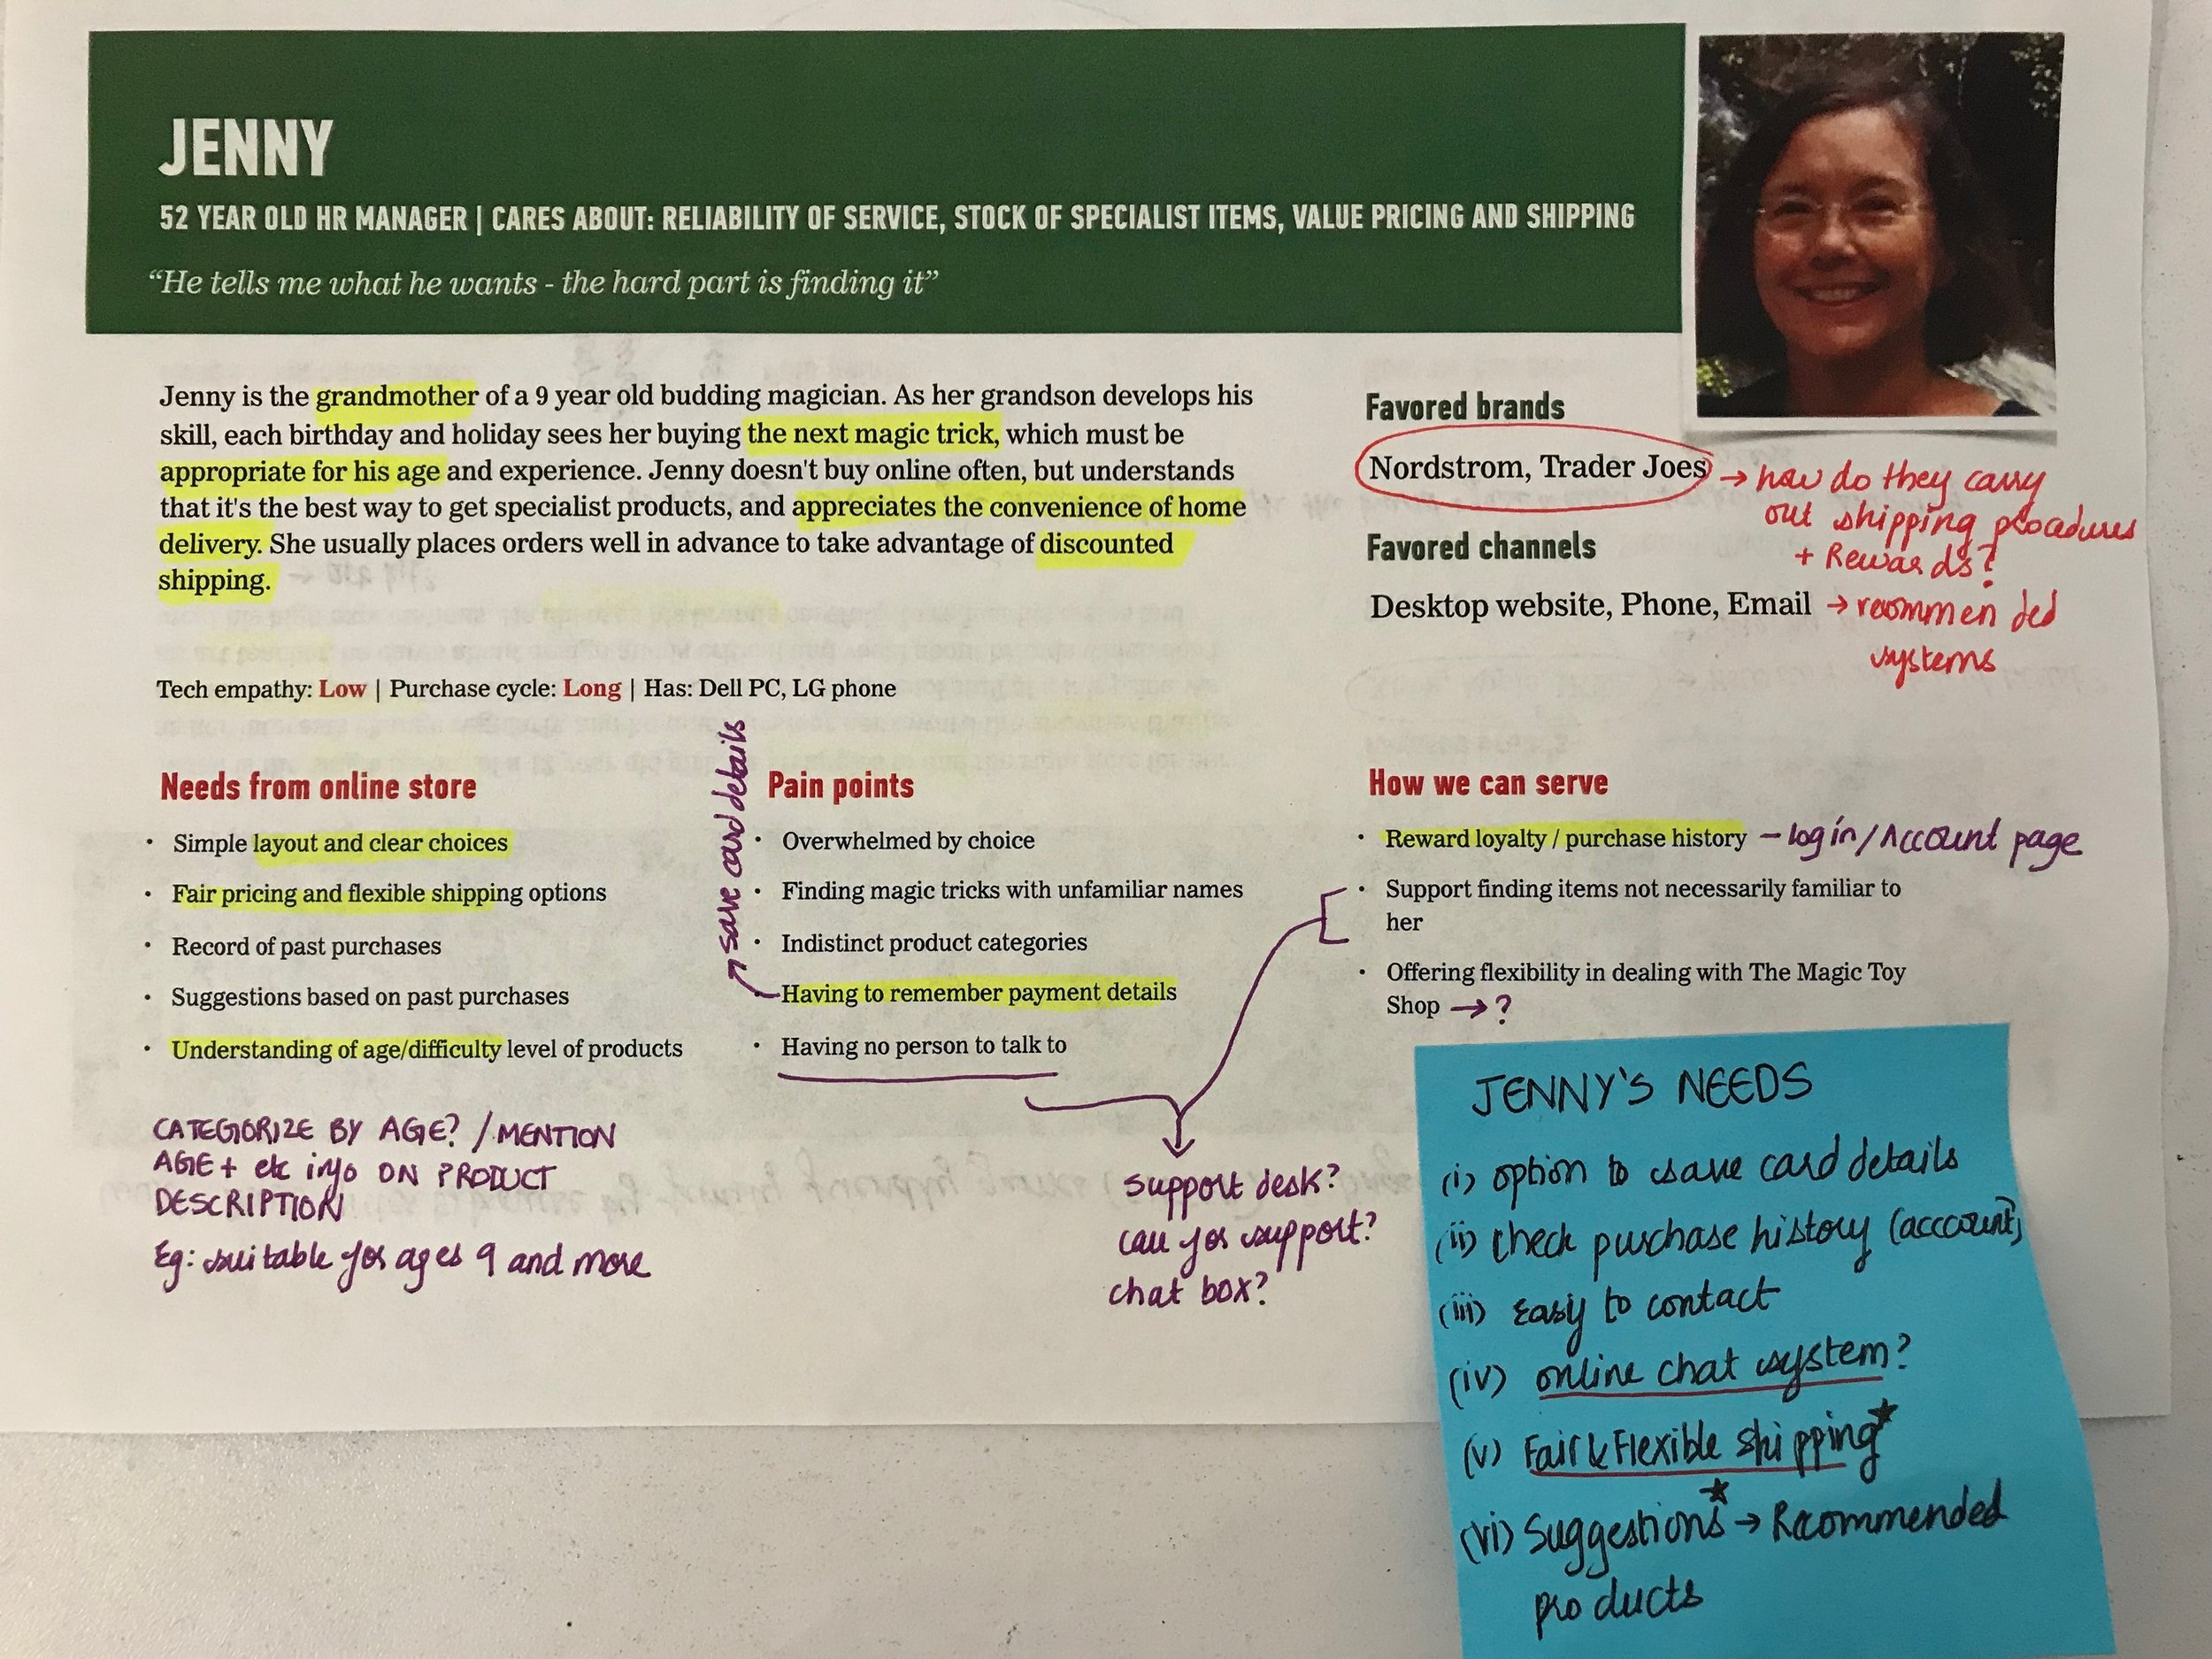 JENNY
52 YEAR OLD HR MANAGER | CARES ABOUT: RELIABILITY OF SERVICE, STOCK OF SPECIALIST ITEMS, VALUE PRICING AND SHIPPING
“He tells me what he wants - the hard part is finding it”
Jenny is the grandmother of a 9 year old budding magician. As her grandson develops his
skill, each birthday and holiday sees her buying the next magic trick, which must be
appropriate for his age and experience. Jenny doesn't buy online often, but understands
that it's the best way to get specialist products, and appreciates the convenience of home
delivery. She usually places orders well in advance to take advantage of discounted
shipping.
Tech empathy: Low | Purchase cycle: Long | Has: Dell PC, LG phone
Favored brands
Nordstrom, Trader Joes → how do they carry
out shipping procedures
+ Rewards?
Favored channels
Desktop website, Phone, Email → recommended
systems
Needs from online store
• Simple layout and clear choices
• Fair pricing and flexible shipping options
• Record of past purchases
• Suggestions based on past purchases
• Understanding of age/difficulty level of products
CATEGORIZE BY AGE? / MENTION
AGE + etc info ON PRODUCT
DESCRIPTION
Eg: suitable for ages 9 and more
save card details
Pain points
• Overwhelmed by choice
• Finding magic tricks with unfamiliar names
• Indistinct product categories
• Having to remember payment details
• Having no person to talk to
support desk?
call for support?
chat box?
How we can serve
• Reward loyalty / purchase history – login/Account page
• Support finding items not necessarily familiar to
her
• Offering flexibility in dealing with The Magic Toy
Shop → ?
JENNY'S NEEDS
(i) option to save card details
(ii) check purchase history (acccount)
(iii) Easy to contact
(iv) online chat system?
(v) Fair & Flexible shipping★
(vi) Suggestions★ → Recommended
products